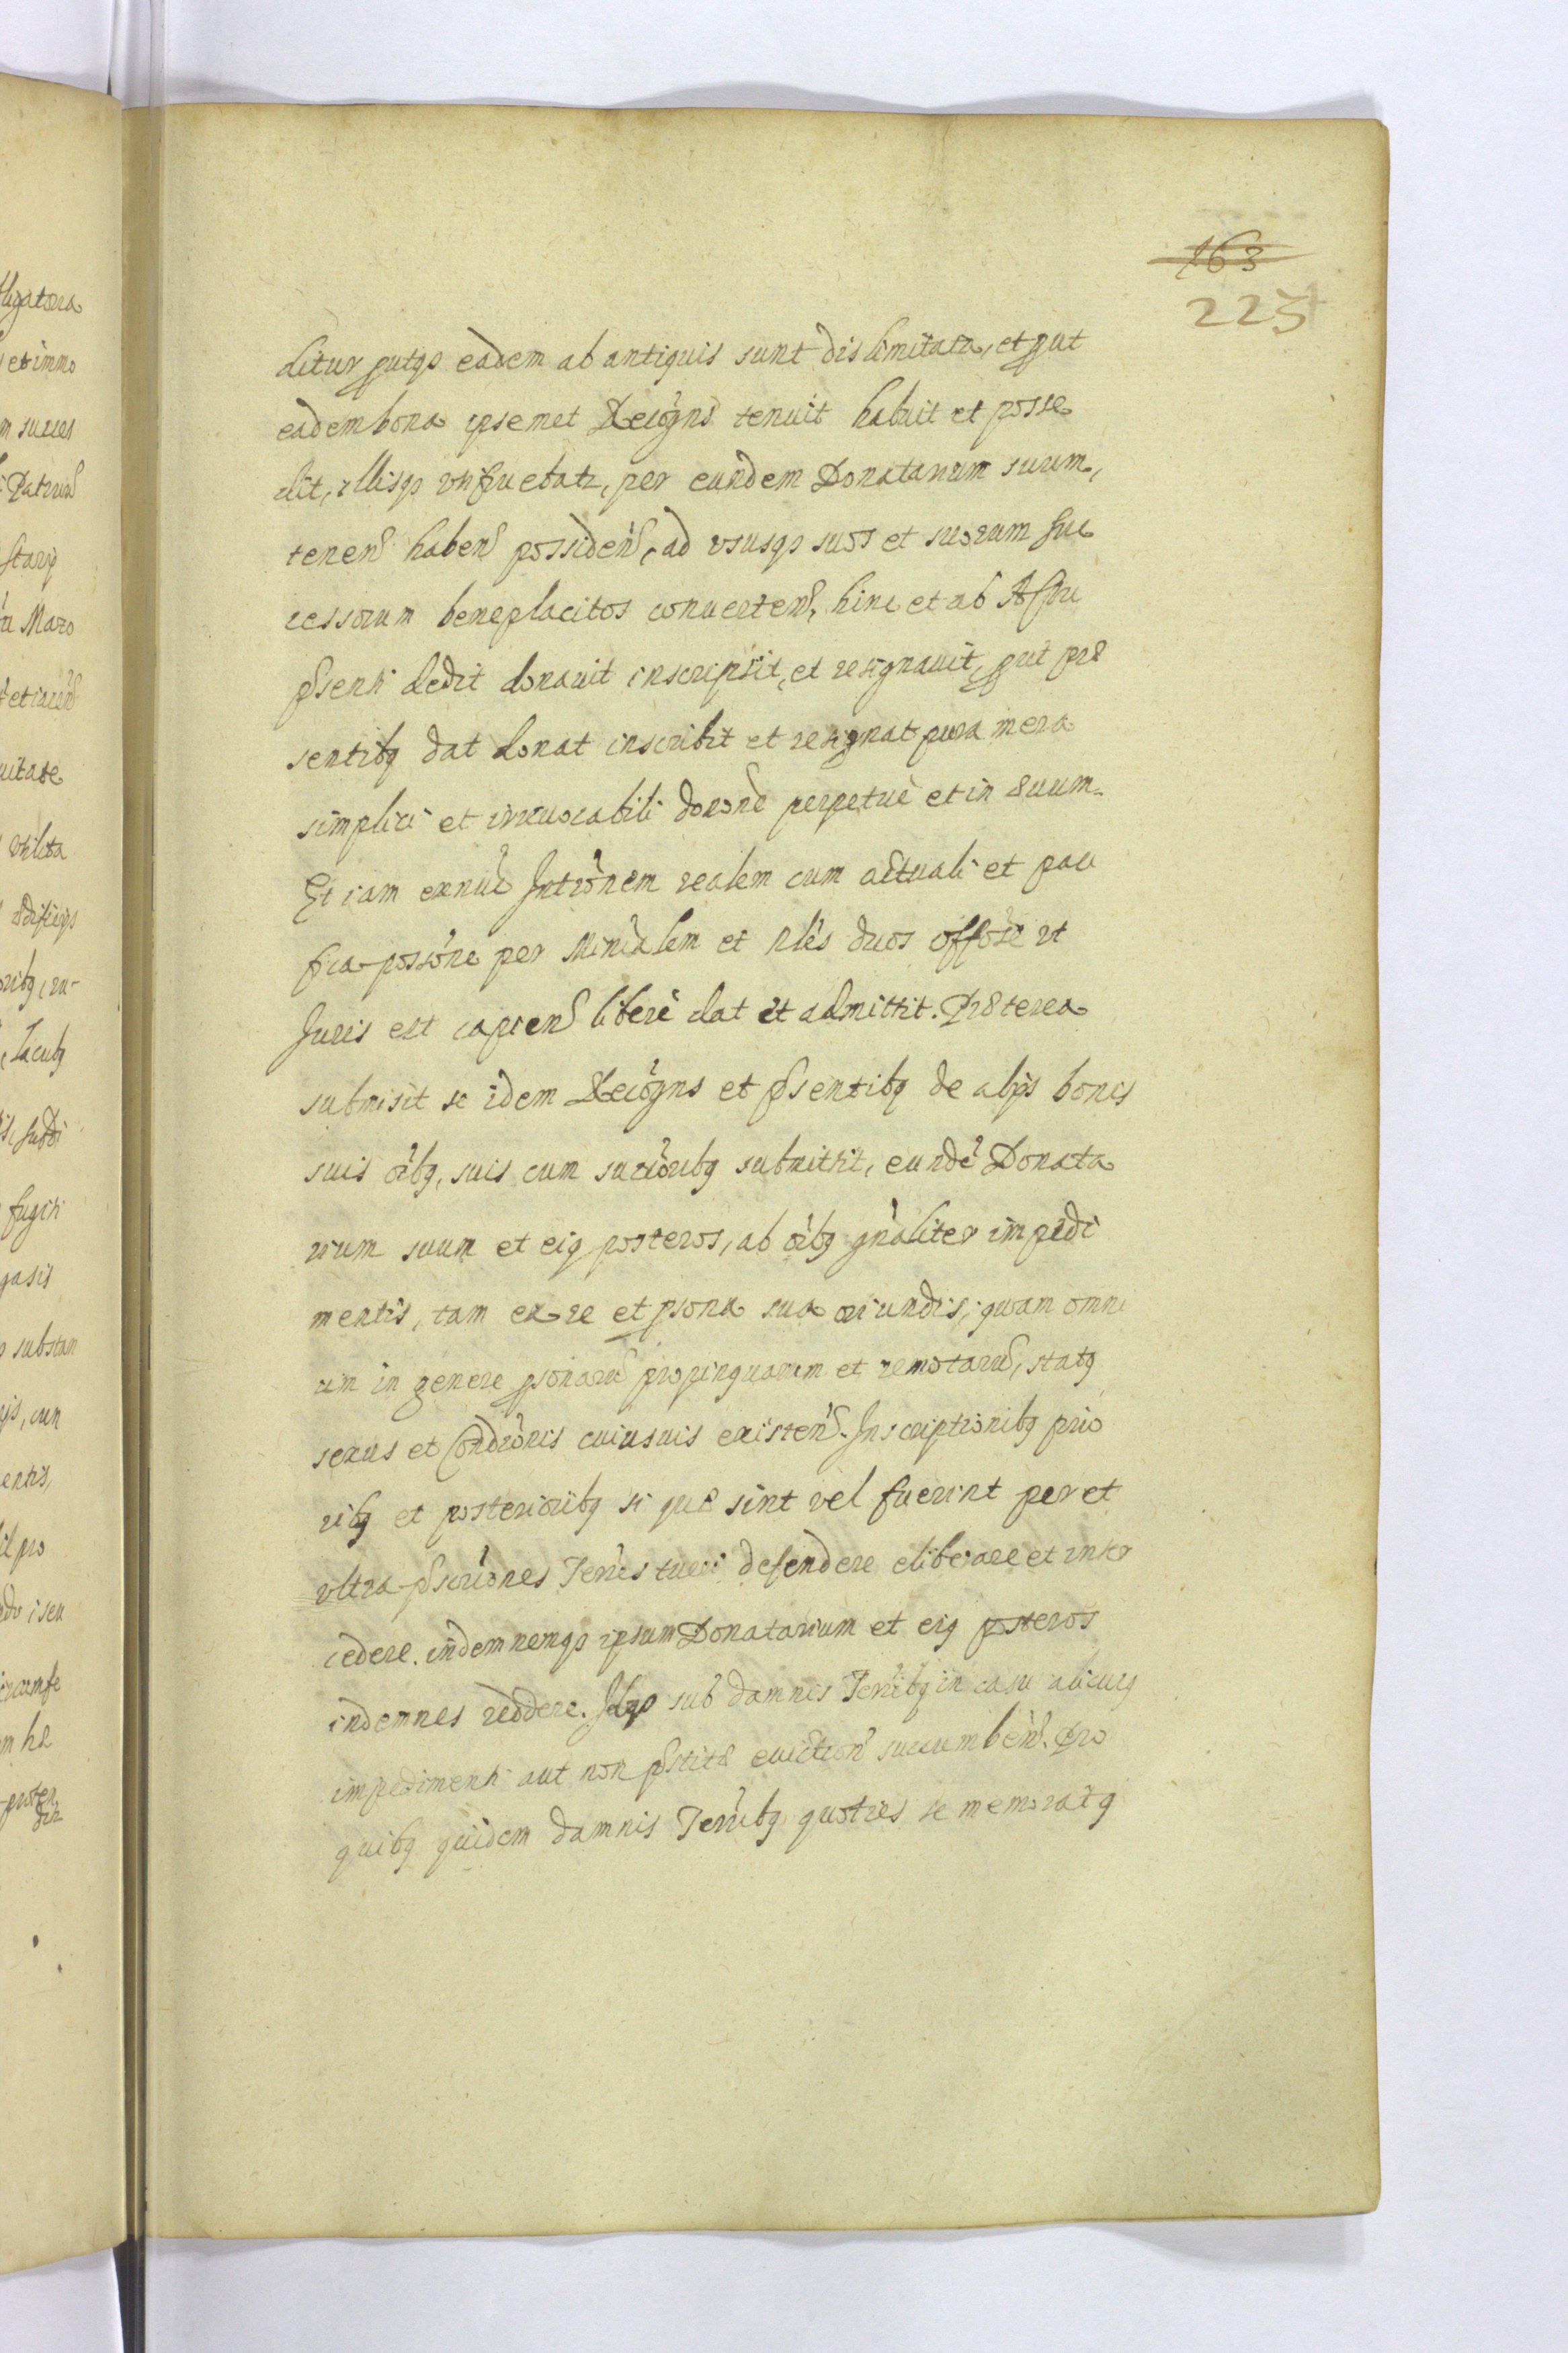 163
223
ditur putqƺ eadem ab antiquis sunt dislimitata, et put
eadem bona ipsemet Recōgns tenuit habuit et posse
dit, illisqƺ vtifruebatr, per eundem Donatarium suum,
tenen̄ haben̄ possiden̄, ad vsusqƺ suos et suorum suc
cessorum beneplacitos conuerten̄, hinc et ab Actu
pn̄senti dedit donauit inscripsit, et resignauit, put præ
sentibƺ dat donat inscribit et resignat pura mera
simplici et irreuocabili dōōne perpetuè et in æuum.
Et iam exnūc Intrōnem realem cum actuali et paci
fica possōne per Ministlem et Nb̄les duos offōse vt
Juris est capien̄ liberè dat et admittit. Præterea
submisit se idem Recōgns et pn̄sentibƺ de alijs bonis
suis oībƺ, suis cum succ̄oribƺ submittit, eundē Donata
rium suum et eiꝯ posteros, ab oībƺ gn̄aliter impedi
mentis, tam ex re et psona sua oriundis, quam omni
um in genere psonarū propinquarum et remotarū, statꝯ
sexus et Condrōnis cuiusuis existen̄. Inscriptionibƺ prio
ribƺ et posterioribƺ si quæ sint vel fuerint per et
vltra pscrip̄ones Terr̄es tueri defendere eliberare et inter
cedere. indemnemqƺ ipsum Donatarium et eiꝯ posteros
indemnes reddere. Idqƺ sub damnis Terr̄ibƺ in casu alicuiꝯ
impedimenti aut non pstitæ euiction̄ succumben̄. Pro
quibƺ quidem damnis Terr̄ibƺ quoties se memoratꝯ